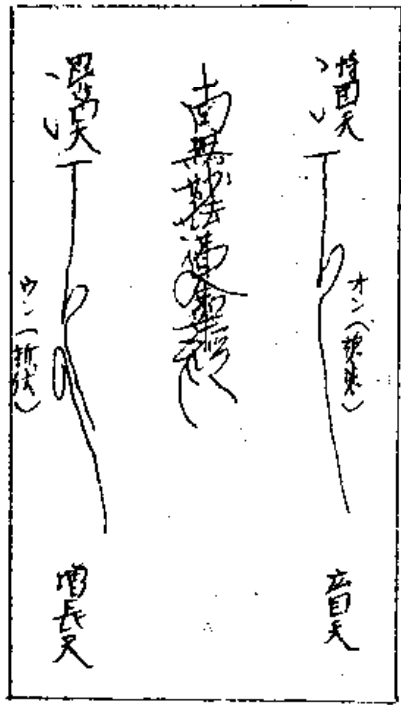 持国天
オン(摂受)
広目天
南無妙法蓮華経
ウン(折伏)
増長天